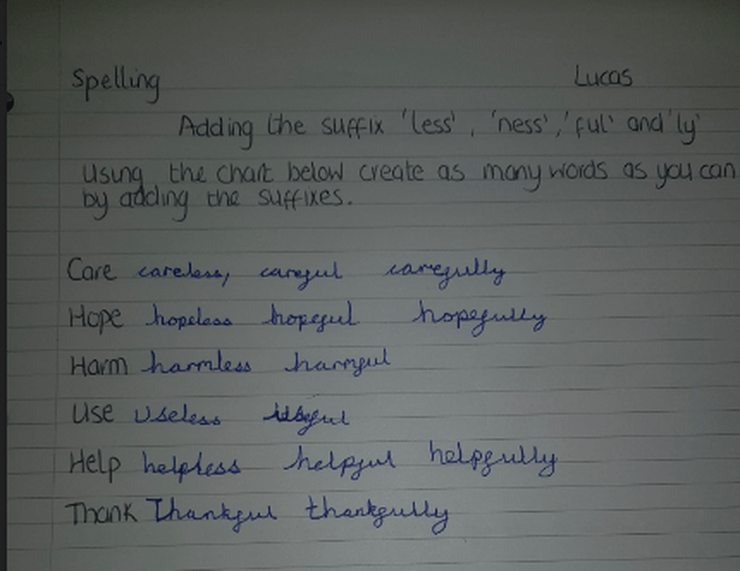 Spelling Lucas
Adding the suffix 'less', 'ness', 'ful' and 'ly'
Using the chart below create as many words as you can
by adding the suffixes.
Care careless, careful carefully
Hope hopeless hopeful hopefully
Harm harmless harmful
Use Useless useful
Help helpless helpful helpfully
Thank Thankful thankfully